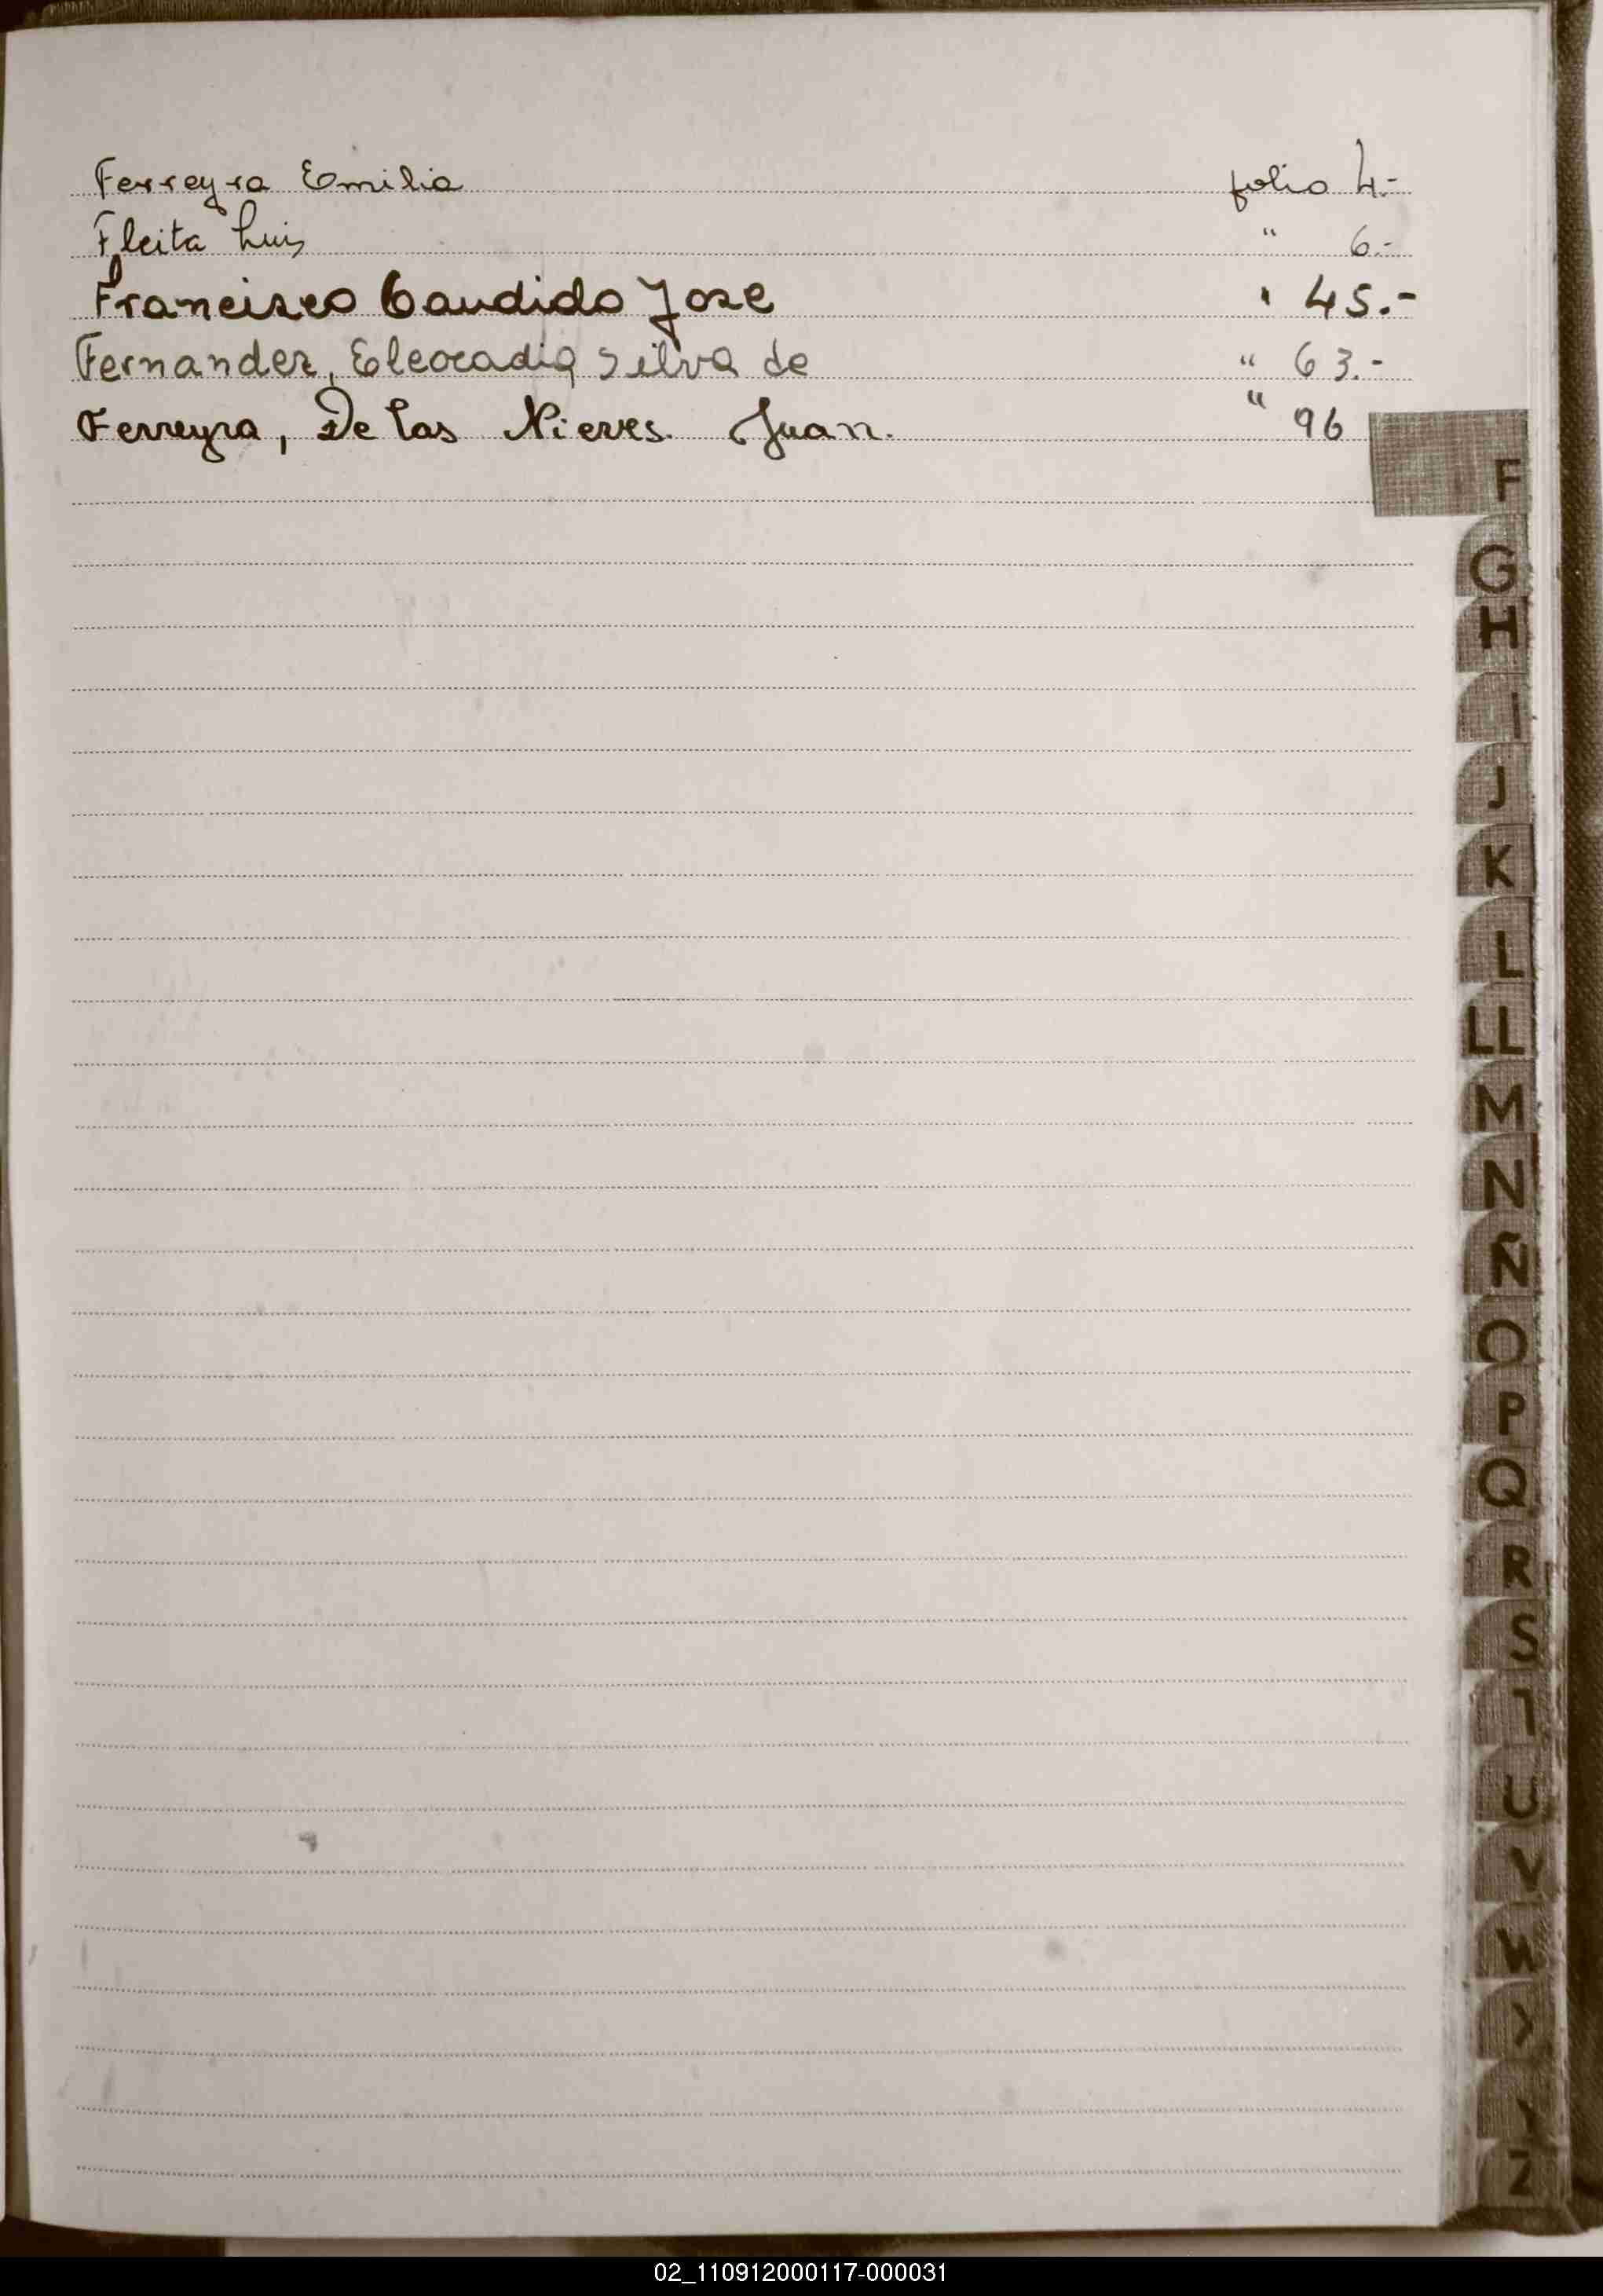 Ferreyra Emilia folio 4.-
Fleita Luis " 6.-
Francisco Candido Jose " 45.-
Fernandez, Eleocadia Silva de " 63.-
Ferreyra, De las Nieves. Juan. " 96
F
G
H
I
J
K
L
LL
M
N
Ñ
O
P
Q
R
S
T
U
V
W
X
Y
Z
02_110912000117-000031